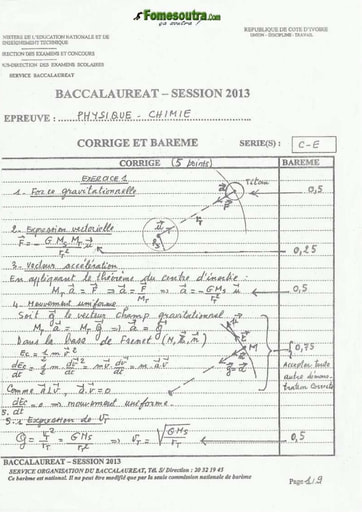 Fomesoutra.com
ça soutra !
MINISTERE DE L'EDUCATION NATIONALE ET DE
L'ENSEIGNEMENT TECHNIQUE
DIRECTION DES EXAMENS ET CONCOURS
SOUS-DIRECTION DES EXAMENS SCOLAIRES
SERVICE BACCALAUREAT
REPUBLIQUE DE COTE D'IVOIRE
UNION - DISCIPLINE - TRAVAIL
BACCALAUREAT – SESSION 2013
EPREUVE : PHYSIQUE - CHIMIE
CORRIGE ET BAREME SERIE(S) : C-E
CORRIGE (5 points) BAREME
EXERCICE 1
1. Force gravitationnelle Titan 0,5
2. Expression vectorielle
F⃗ = - G M_S M_T / r_T² u⃗ 0,25
3. Vecteur accélération
En appliquant le théorème du centre d'inertie :
M_T a⃗ = F⃗ ⇒ a⃗ = F⃗ / M_T ⇒ a⃗ = - G M_S / r_T² u⃗ 0,5
4. Mouvement uniforme
Soit g⃗ le vecteur champ gravitationnel
M_T a⃗ = M_T g⃗ ⇒ a⃗ = g⃗
Dans la base de Frenet (M, t⃗, n⃗) 0,75
Ec = 1/2 m v⃗²
dEc/dt = 1/2 m dv⃗²/dt = m v⃗ dv⃗/dt = m a⃗ v⃗
Accepter toute autre démonstration correcte
Comme a⃗ ⊥ v⃗, a⃗.v⃗ = 0
dEc/dt = 0 ⇒ mouvement uniforme.
5.
5.1 Expression de V_T
G = V_T² / r_T = G M_S / r_T² ⇒ V_T = √(G M_S / r_T) 0,5
BACCALAUREAT – SESSION 2013
SERVICE ORGANISATION DU BACCALAUREAT, Tél. S/ Direction : 20 32 19 45
Ce barème est national. Il ne peut être modifié que par la seule commission nationale de barème
Page 1/9